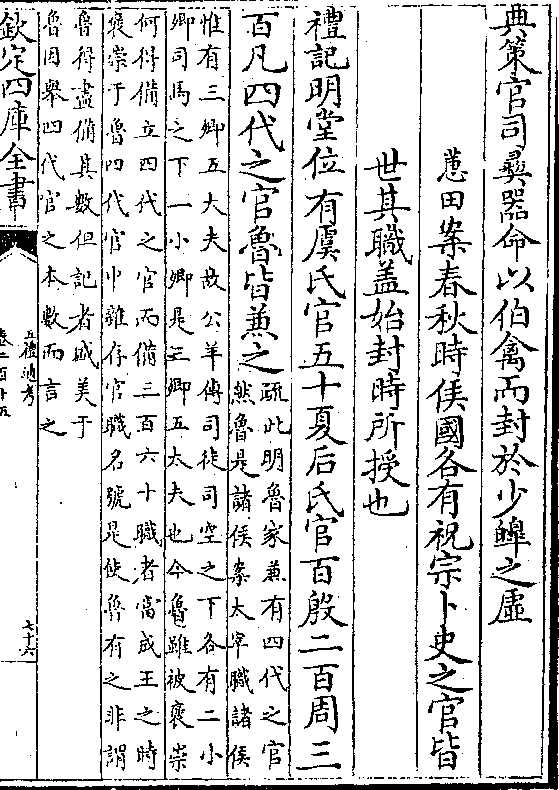 典策官司彞器命以伯禽而封於少皥之虛
蕙田案春秋時侯國各有祝宗卜史之官皆
世其職盖始封時所授也
禮記明堂位有虞氏官五十夏后氏官百殷二百周三
百凡四代之官魯皆兼之
疏此明魯家兼有四代之官
然魯是諸侯案太宰職諸侯
惟有三卿五大夫故公羊傳司徒司空之下各有二小
卿司馬之下一小卿是三卿五大夫也今魯雖被褒崇
何得備立四代之官而備三百六十職者當成王之時
褒崇于魯四代官中雜存官職名號是使魯有之非謂
魯得盡備其數但記者盛美于
魯因舉四代官之本數而言之
欽定四庫全書
五禮通考
卷二百十五
七十六